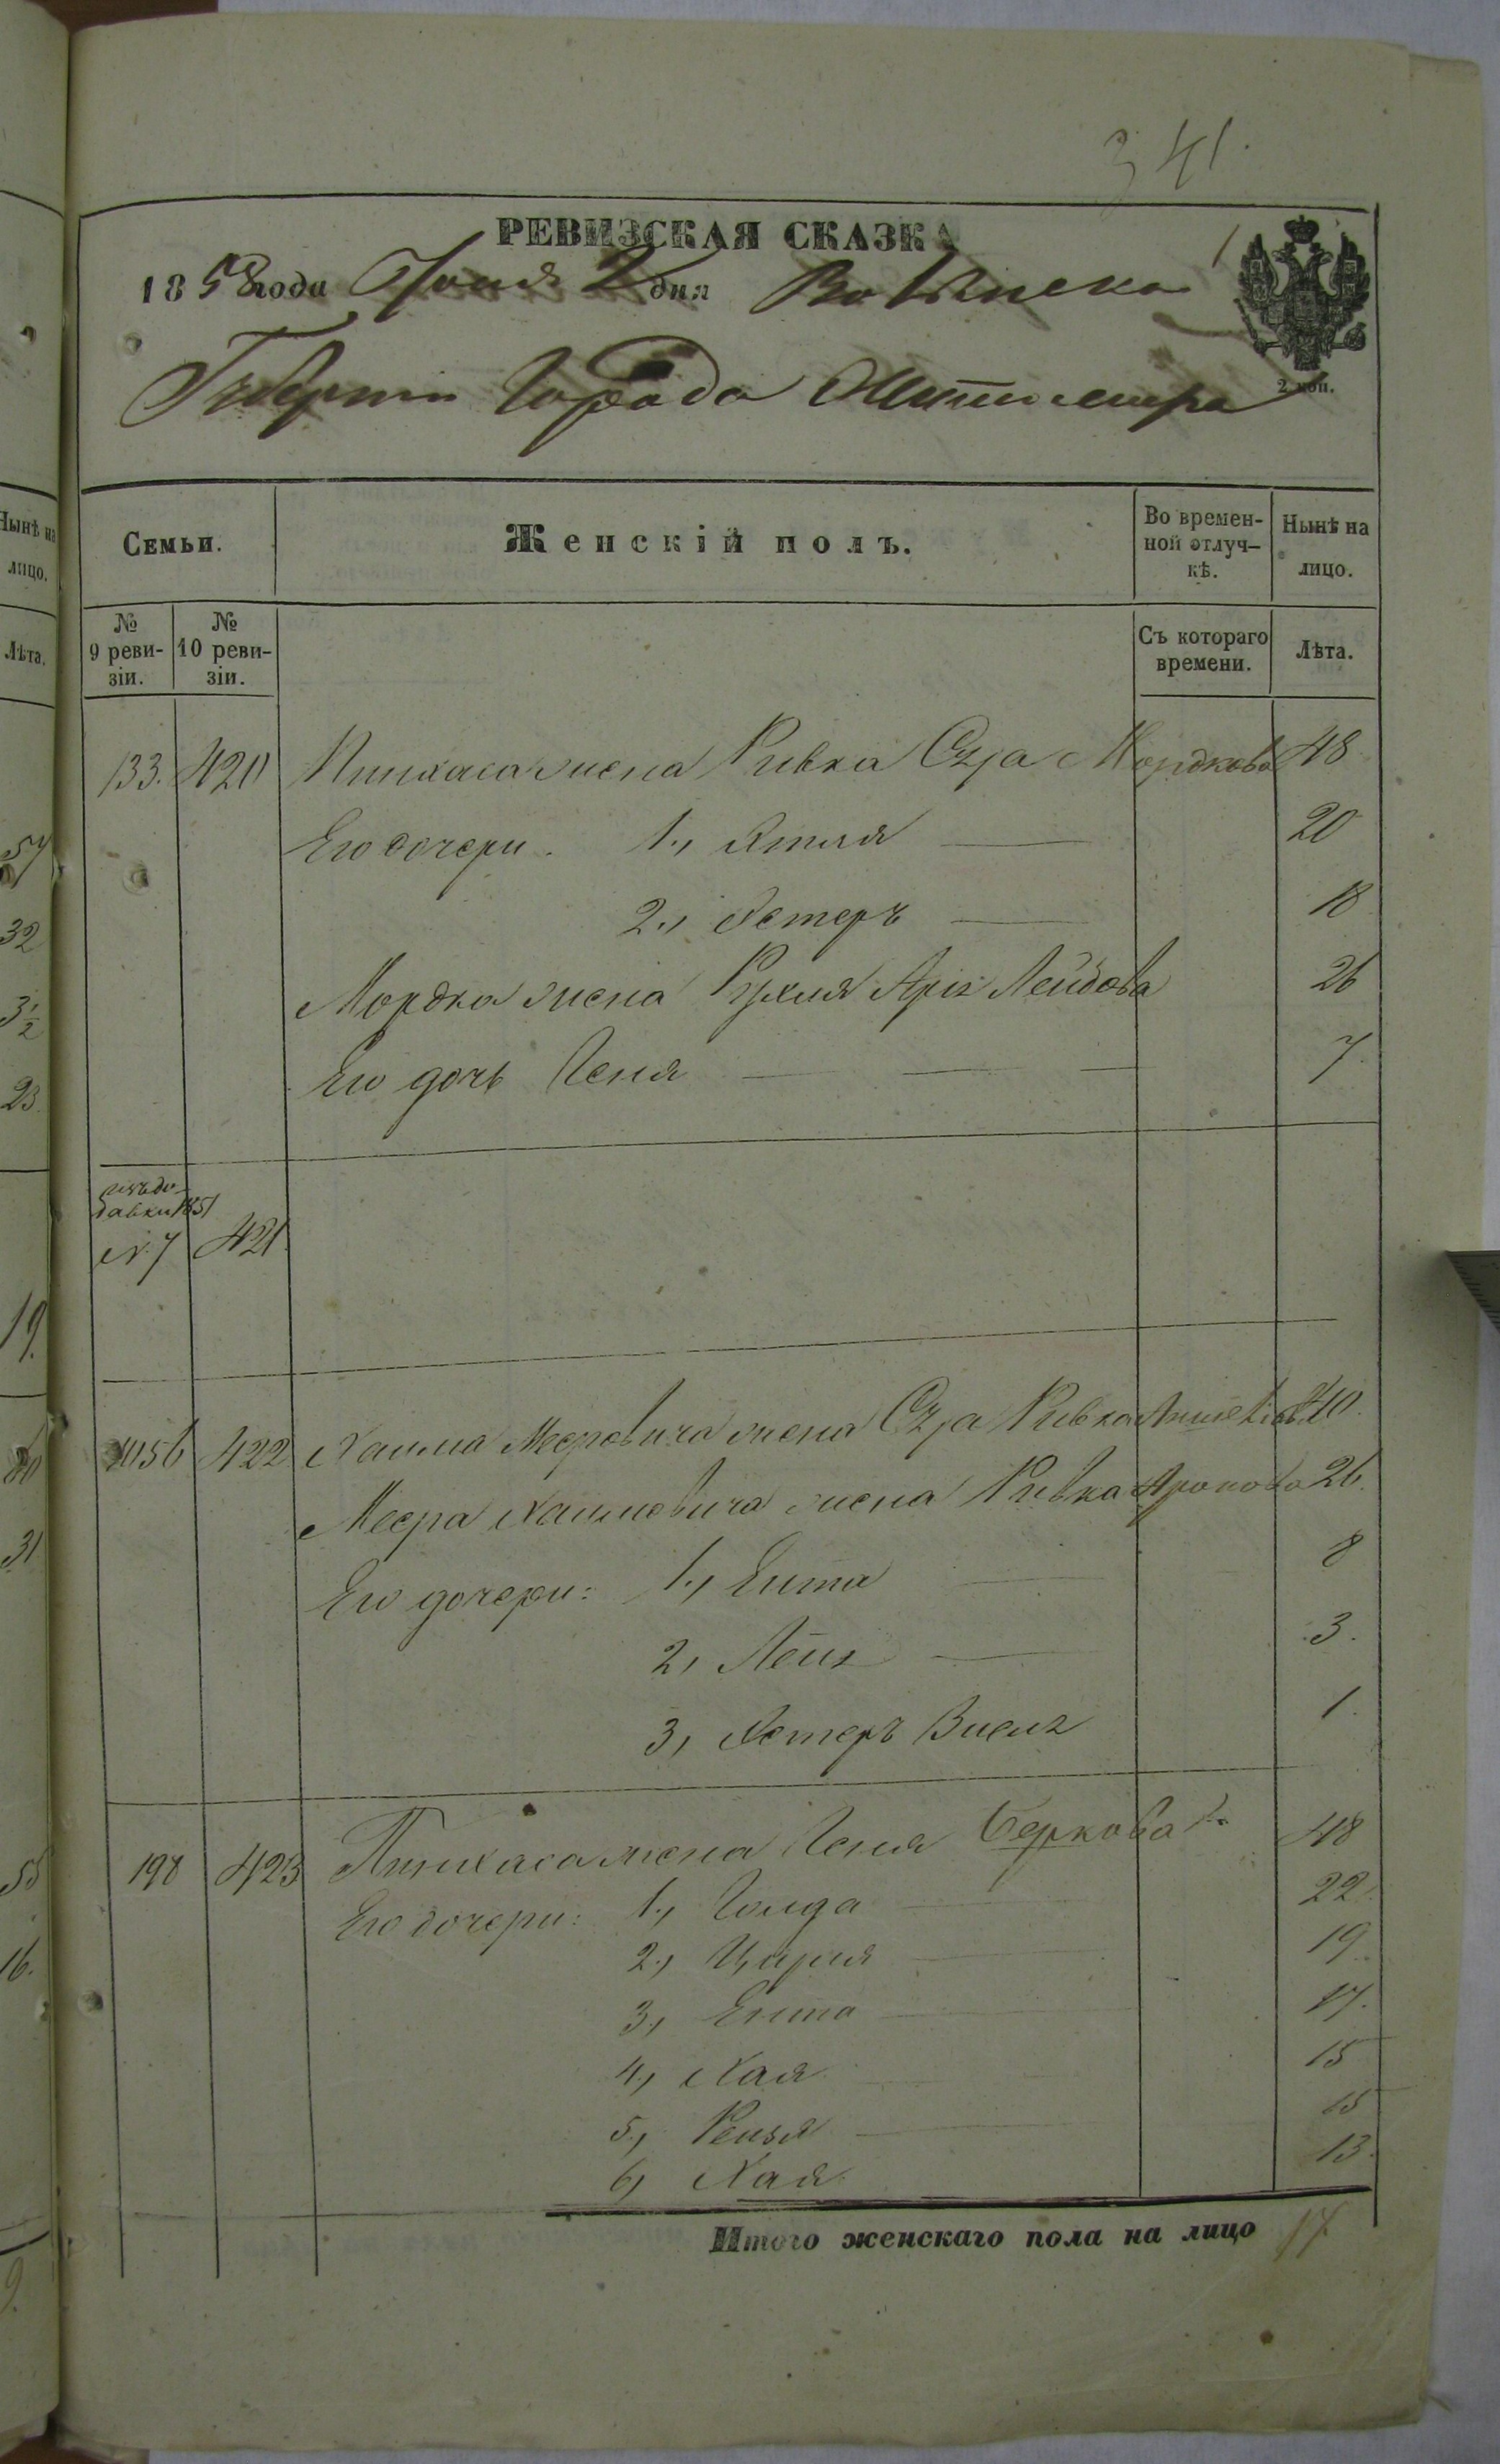 341.
РЕВИЗСКАЯ СКАЗКА
1858 года Іюня 2 дня Волынско
Губерніи Города Житомира
2 коп.
Семьи. Женскій полъ. Во времен-ной отлуч-кѣ. Нынѣ на лицо.
№ 9 реви-зіи. № 10 реви-зіи. Съ котораго времени. Лѣта.
133. 420 Пинхаса жена Ривка Сура Мордкова 48
Его дочери. 1., Этля 20
2., Эстеръ 18
Мордка жена Рухля Арiя Лейбова 26
Его дочь Геня 7.
изъ до-
бавки 1851
№ 7 421.
1056 422 Хаима Мееровича жена Сура Ривка 40.
Меера Хаимовича жена Ривка Аронова 26.
Его дочери: 1., Ента 8
2, Лея 3.
3, Эстеръ 1.
198 423 Пинхаса жена Геня Беркова 48
Его дочери: 1., Голда 22.
2., Цирля 19.
3, Ента 17.
4., Хая 15
5., Рейзя 15
6, Хая 13.
Итого женскаго пола на лицо 17.
Нынѣ на
лицо.
Лѣта.
57
32
3 1/2
23.
19.
31
55
16.
9.